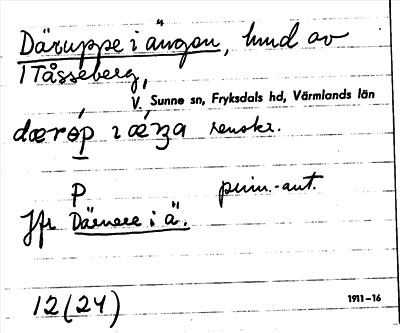 Däruppe i ängen, hmd av
1 Tåsseberg,
V. Sunne sn, Fryksdals hd, Värmlands län
renskr.
p prim.-ant.
Jfr Därnere i ä.
12 (24)
1911–16